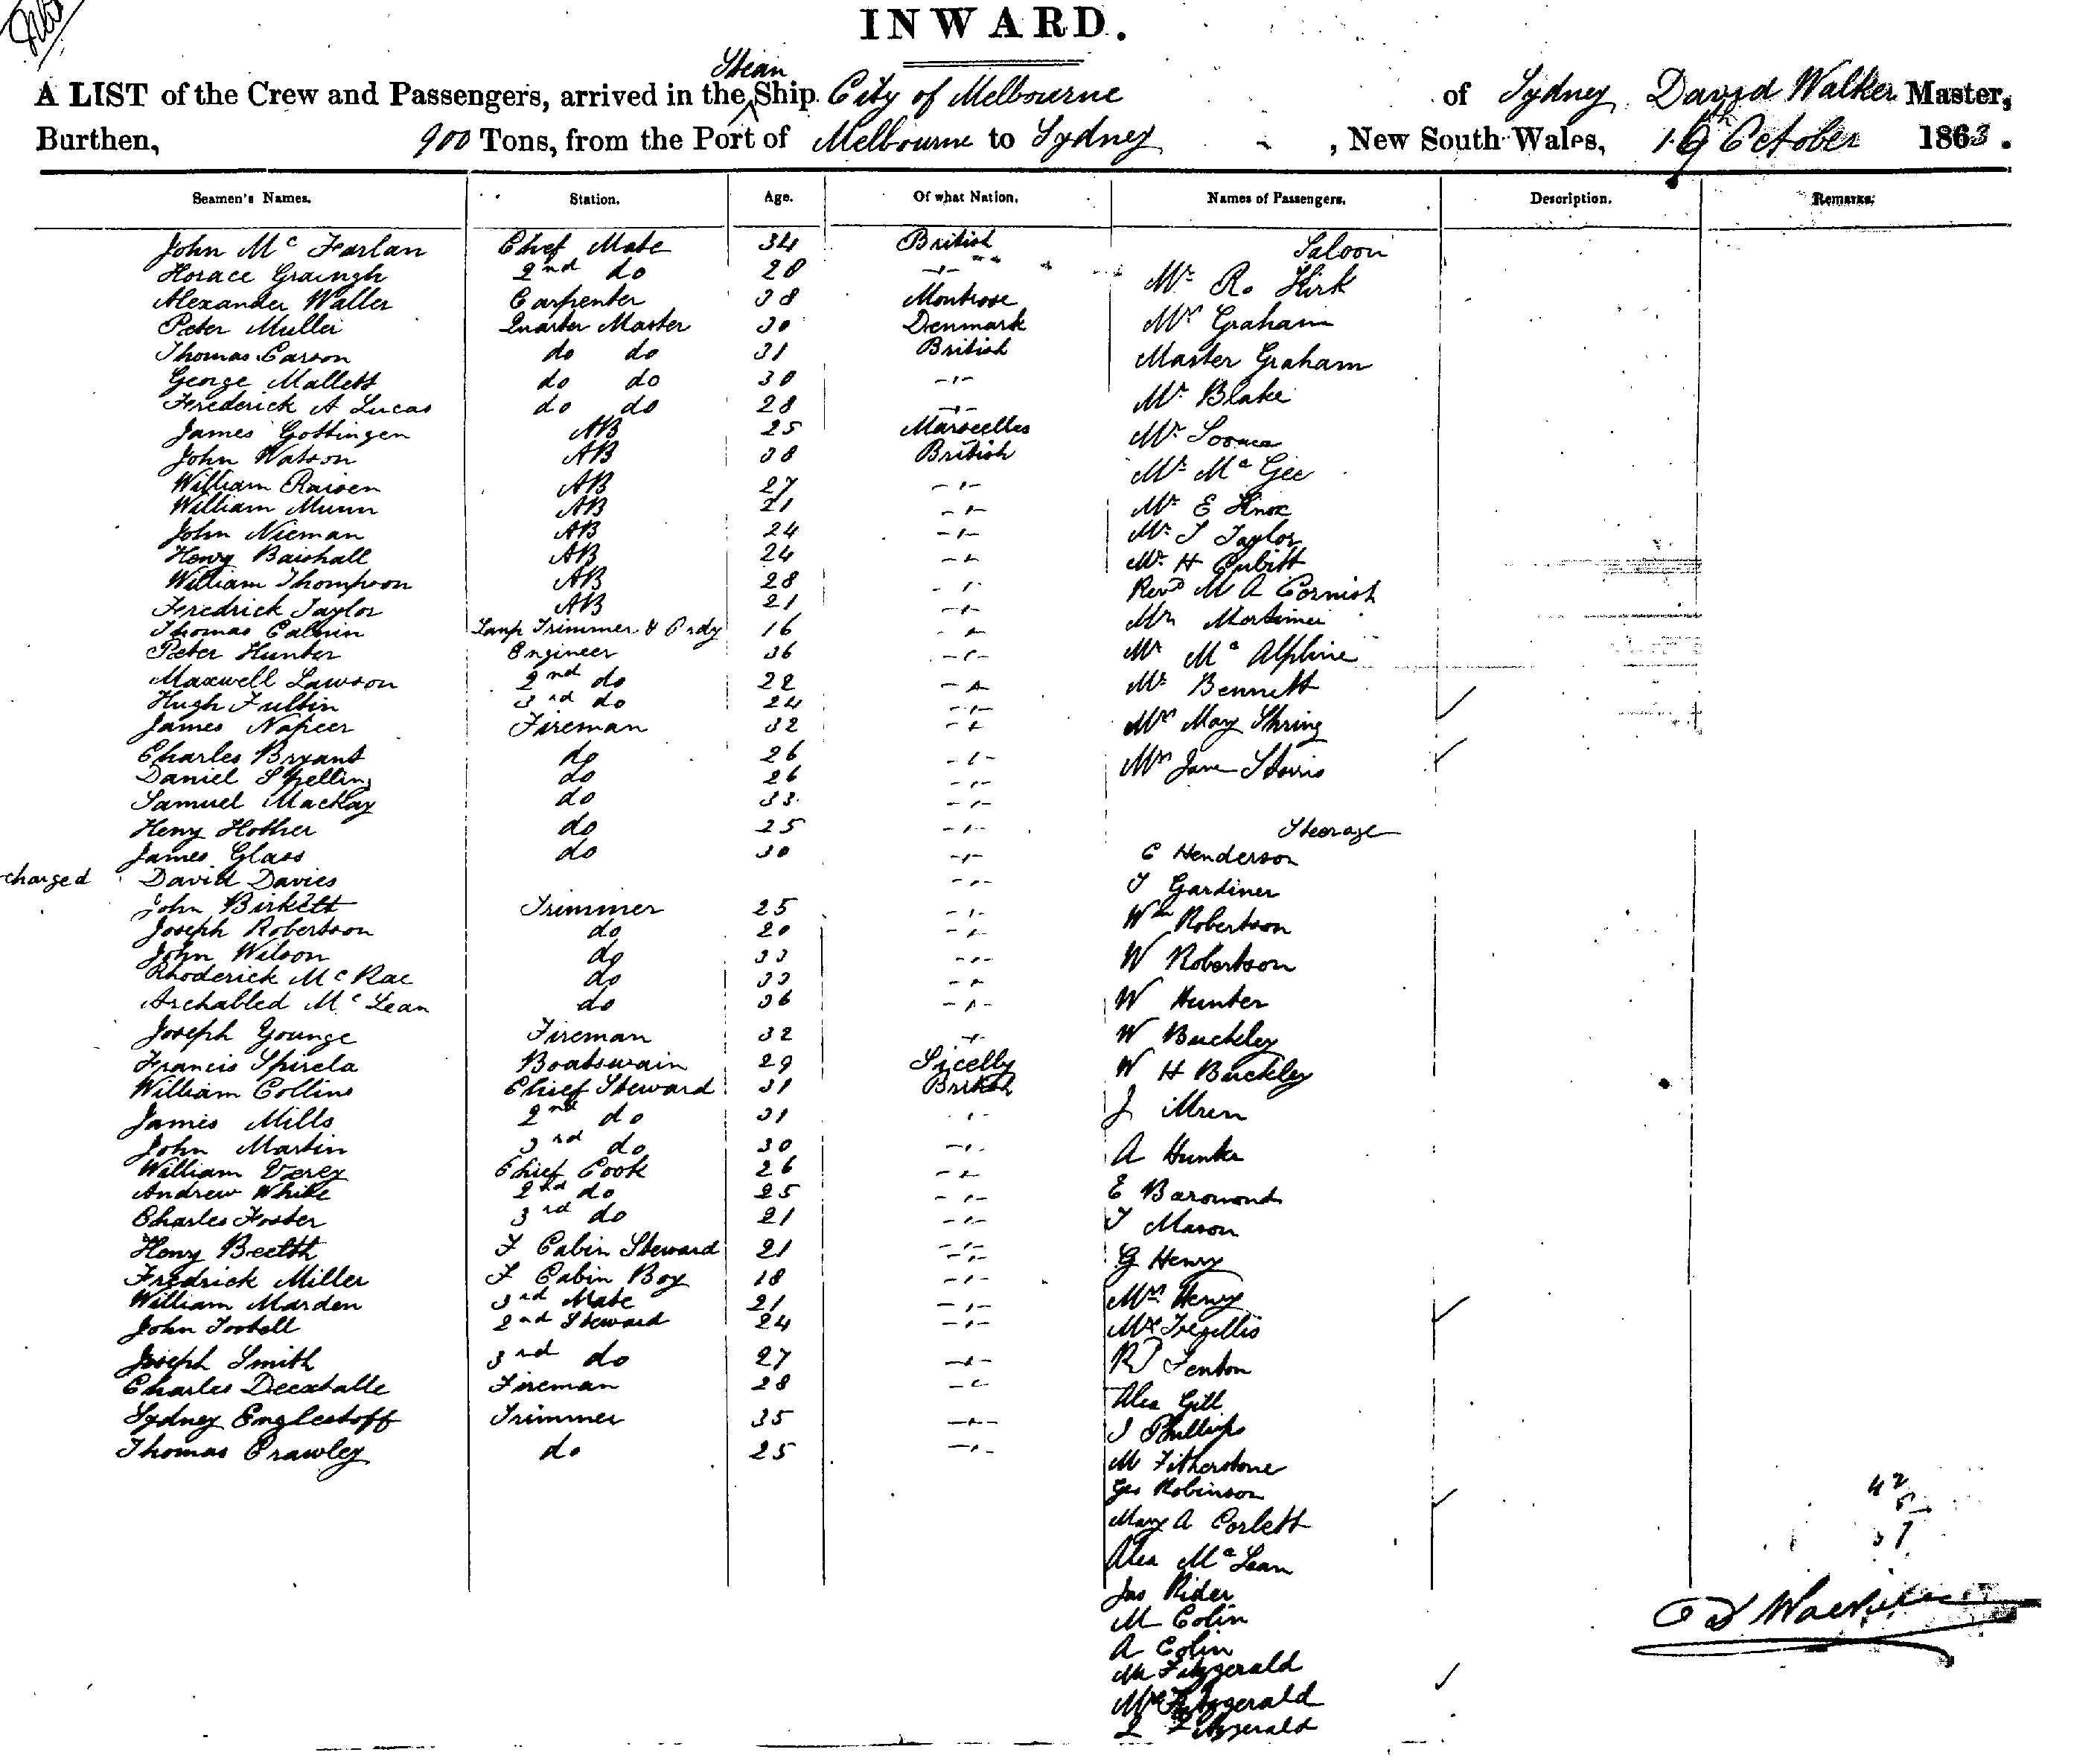 INWARD.
A LIST of the Crew and Passengers, arrived in the Steam Ship City of Melbourne of Sydney David Walker Master,
Burthen, 900 Tons, from the Port of Melbourne to Sydney, New South Wales, 19th October 1863.
Seamen's Names. Station. Age. Of what Nation. Names of Passengers. Description. Remarks.
John McFarlan Chief Mate 34 British Saloon
Horace 2nd do 28 -"- Mr R. Kirk
Alexander Waller Carpenter 38 Montrose Mrs Graham
Peter Muller Quarter Master 30 Denmark Master Graham
Thomas Carson do do 31 British Mr Blake
George Mallett do do 30 -"-
Frederick A Lucas do do 28 -"- Mr McGee
James Gottingen AB 25 Marseelles Mr E Knox
John Watson AB 38 British Mr T Taylor
William AB 27 -"- Mr H Cubitt
William Munn AB 21 -"- Revd M A Cornish
John Nieman AB 24 -"- Mr Mortimer
Henry Baishall AB 24 -"- Mr McAlpline
William Thompson AB 28 -"- Mr Bennett
Fredrick Taylor AB 21 -"- Mrs May Shring
Thomas Calvin Lamp Trimmer & 16 -"- Mrs Jane
Peter Hunter Engineer 36 -"-
Maxwell Lawson 2nd do 22 -"-
Hugh Fultin 3rd do 24 -"-
James Napeer Fireman 32 -"-
Charles Bryant do 26 -"-
Daniel Spelling do 26 -"-
Samuel Mackay do 33 -"-
Heny Hother do 25 -"- Steerage
James Glass do 30 -"- C Henderson
charged David Davies -"- T Gardiner
John Birkett Trimmer 25 -"- Wm Robertson
Joseph Robertson do 20 -"- W Robertson
John Wilson do 33 -"- W Hunter
Rhoderick McRae do 33 -"- W Buckley
Archabled McLean do 36 -"- W H Buckley
Joseph Younge Fireman 32 -"- J
Francis Spirela Boatswain 29 Sicelly A
William Collins Chief Steward 31 British E
James Mills 2nd do 31 -"- T Mason
John Martin 3rd do 30 -"- G Henry
William Verey Chief Cook 26 -"- Mrs Henry
Andrew White 2nd do 25 -"- Mrs Tregellis
Charles Foster 3rd do 21 -"- R Fenton
Heny Beetth F Cabin Steward 21 -"- Alex Gill
Fredrick Miller F Cabin Boy 18 -"- J Phillips
William Marden 3rd Mate 21 -"- M Fitherstone
John Tootell 2nd Steward 24 -"- Geo Robinson
Joseph Smith 3rd do 27 -"- Mary A Corlett
Charles Fireman 28 -"- Alex McLean
Sydney Englestoff Trimmer 35 -"- Jas Rider
Thomas Crawley do 25 -"- M Colin
A Colin
M Fitzgerald
Mrs Fitzgerald
L Fitzgerald
42
5
37